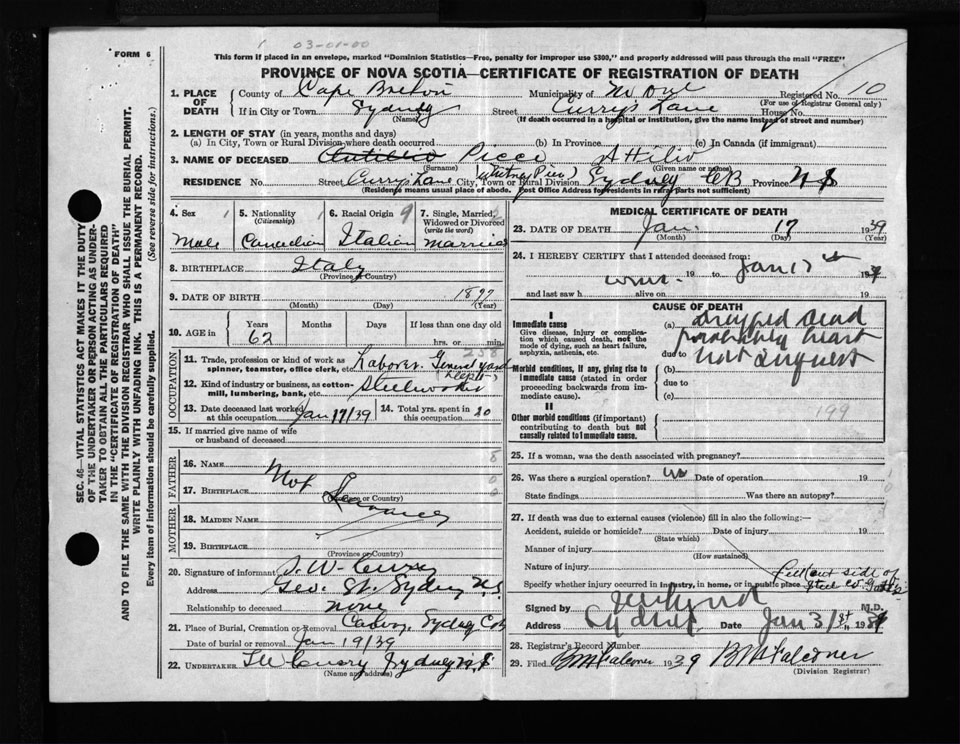 03-01-00
FORM 6
This form if placed in an envelope, marked "Dominion Statistics—Free, penalty for improper use $300," and properly addressed will pass through the mail "FREE"
PROVINCE OF NOVA SCOTIA—CERTIFICATE OF REGISTRATION OF DEATH
1. PLACE OF DEATH
County of Cape Breton Municipality of Registered No. 10
(For use of Registrar General only)
If in City or Town Sydney Street Currys Lane House No.
(Name) (If death occurred in a hospital or institution, give the name instead of street and number)
2. LENGTH OF STAY (in years, months and days)
(a) In City, Town or Rural Division where death occurred (b) In Province (c) In Canada (if immigrant)
3. NAME OF DECEASED Picci Attilio
(Surname) (Given name or names)
(Whitney Pier)
RESIDENCE No. Street Currys Lane City, Town or Rural Division Sydney CB Province N S
(Residence means usual place of abode. Post Office Address for Residents in rural parts not sufficient)
4. Sex 1
Male
5. Nationality 1
(Citizenship)
Canadian
6. Racial Origin 9
Italian
7. Single, Married, Widowed or Divorced
(write the word)
married
8. BIRTHPLACE Italy
(Province or Country)
9. DATE OF BIRTH 1877
(Month) (Day) (Year)
10. AGE in
Years Months Days If less than one day old
62 hrs. or min.
OCCUPATION
258
11. Trade, profession or kind of work as spinner, teamster, office clerk, etc. Labor. General yard
12. Kind of industry or business, as cotton-mill, lumbering, bank, etc. Steelworks
13. Date deceased last worked at this occupation Jan 17/39
14. Total yrs. spent in this occupation 20
15. If married give name of wife or husband of deceased
FATHER
16. Name
17. Birthplace
(Province or Country)
Not
MOTHER
18. Maiden Name
19. Birthplace
(Province or Country)
20. Signature of informant
Address Geo. St. Sydney N.S.
Relationship to deceased none
21. Place of Burial, Cremation or Removal Sydney CB
Date of burial or removal Jan 19/39
22. UNDERTAKER Sydney N S
(Name and address)
MEDICAL CERTIFICATE OF DEATH
23. DATE OF DEATH Jan. 17 1939
(Month) (Day) (Year)
24. I HEREBY CERTIFY that I attended deceased from:
19 to Jan 17th 1939
and last saw h alive on 19
CAUSE OF DEATH
I
Immediate cause
Give disease, injury or complication which caused death, not the mode of dying, such as heart failure, asphyxia, asthenia, etc.
(a) dropped dead
probably heart
due to not inquest
Morbid conditions, if any, giving rise to immediate cause (stated in order proceeding backwards from immediate cause).
(b)
due to
(c)
II
Other morbid conditions (if important) contributing to death but not causally related to immediate cause.
199
25. If a woman, was the death associated with pregnancy?
26. Was there a surgical operation? no Date of operation 19
State findings Was there an autopsy?
27. If death was due to external causes (violence) fill in also the following:—
Accident, suicide or homicide? Date of injury 19
(State which)
Manner of injury
(How sustained)
Nature of injury
Specify whether injury occurred in industry, in home, or in public place
Fell out side of Steel Co
Signed by M.D.
Address Sydney Date Jan 31st 1939
28. Registrar's Record Number
29. Filed 1939
(Division Registrar)
SEC. 46—VITAL STATISTICS ACT MAKES IT THE DUTY OF THE UNDERTAKER OR PERSON ACTING AS UNDERTAKER TO OBTAIN ALL THE PARTICULARS REQUIRED IN THE "CERTIFICATE OF REGISTRATION OF DEATH" AND TO FILE THE SAME WITH THE DIVISION REGISTRAR WHO SHALL ISSUE THE BURIAL PERMIT.
WRITE PLAINLY WITH UNFADING INK. THIS IS A PERMANENT RECORD.
Every item of information should be carefully supplied. (See reverse side for instructions.)